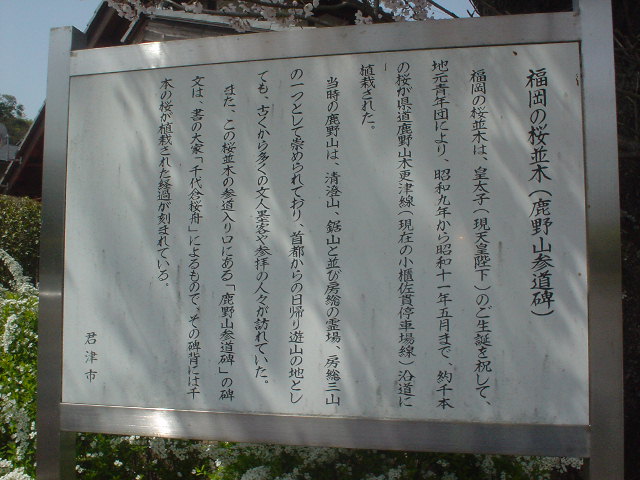 福岡の桜並木（鹿野山参道碑）
福岡の桜並木は、皇太子（現天皇陛下）のご生誕を祝して、
地元青年団により、昭和九年から昭和十一年五月まで、約千本
の桜が県道鹿野山木更津線（現在の小櫃佐貫停車場線）沿道に
植栽された。
当時の鹿野山は、清澄山、鋸山と並び房総の霊場、房総三山
の一つとして崇められており、首都からの日帰り遊山の地とし
ても、古くから多くの文人墨客や参拝の人々が訪れていた。
また、この桜並木の参道入り口にある「鹿野山参道碑」の碑
文は、書の大家「千代倉桜舟」によるもので、その碑背には千
本の桜が植栽された経過が刻まれている。
君津市